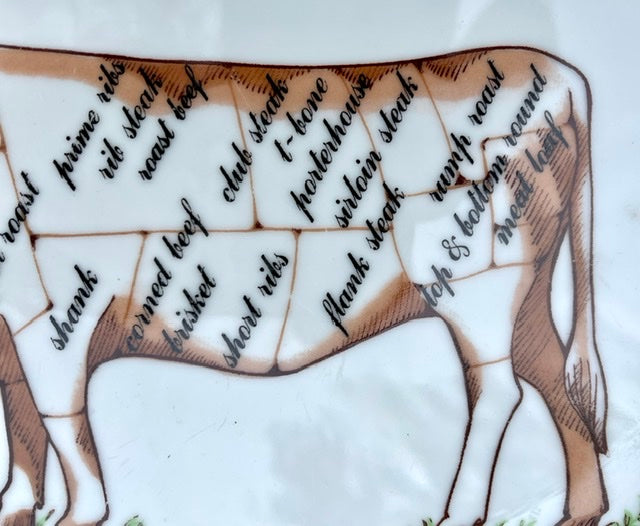 roast
prime ribs
rib steak
roast beef
club steak
t-bone
porterhouse
sirloin steak
rump roast
top & bottom round
meat loaf
shank
corned beef
brisket
short ribs
flank steak